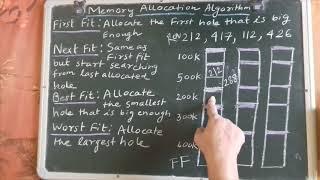 Memory Allocation Algorithm
First Fit: Allocate the first hole that is big
Enough
212, 417, 112, 426
Next Fit: Same as
First fit
but start searching
from last allocated
hole
Best Fit: Allocate
the smallest
hole that is big enough
Worst Fit: Allocate
the largest hole
100k
500k
200k
300k
600k
212
288
FF